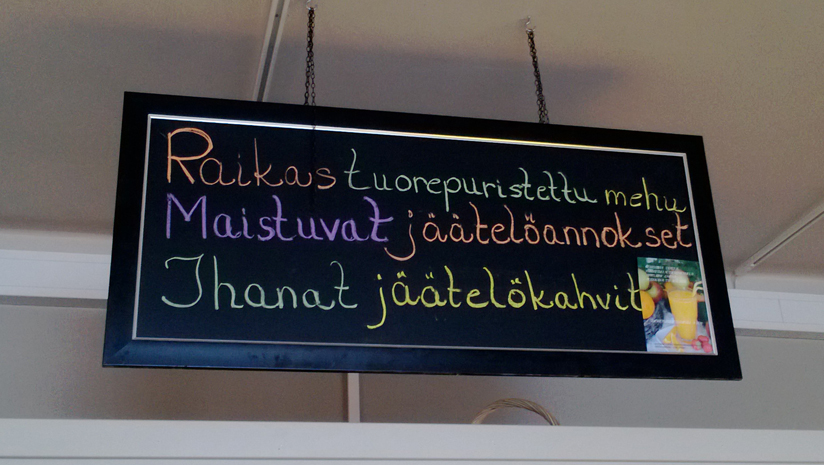 Raikas tuorepuristettu mehu
Maistuvat jäätelöannokset
Ihanat jäätelökahvit